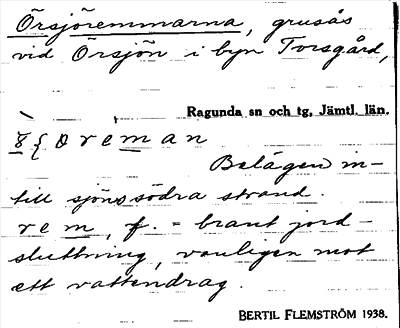 Örsjöremmarna, grusås
vid Örsjön i byn Torsgård,
Ragunda sn och tg, Jämtl. län.
oreman
Belägen in-
till sjöns södra strand.
rem, f. = brant jord-
sluttning, vanligen mot
ett vattendrag.
BERTIL FLEMSTRÖM 1938.